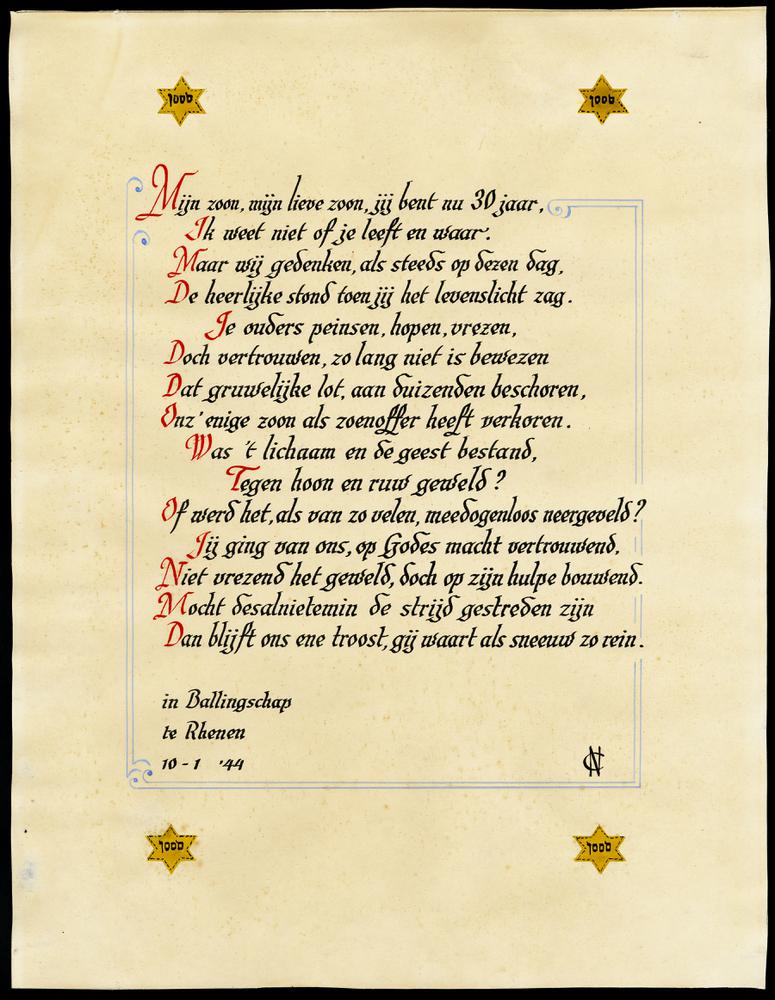 Jood Jood
Mijn zoon, mijn lieve zoon, jij bent nu 30 jaar,
Ik weet niet of je leeft en waar.
Maar wij gedenken, als steeds op dezen dag,
De heerlijke stond toen jij het levenslicht zag.
Je ouders peinsen, hopen, vrezen,
Doch vertrouwen, zo lang niet is bewezen
Dat gruwelijke lot, aan duizenden beschoren,
Onz' enige zoon als zoenoffer heeft verkoren.
Was 't lichaam en de geest bestand,
Tegen hoon en ruw geweld?
Of werd het, als van zo velen, meedogenloos neergeveld?
Jij ging van ons, op Godes macht vertrouwend,
Niet vrezend het geweld, doch op zijn hulpe bouwend.
Mocht desalnietemin de strijd gestreden zijn
Dan blijft ons ene troost, gij waart als sneeuw zo rein.
in Ballingschap
te Rhenen
10-1 '44
Jood Jood